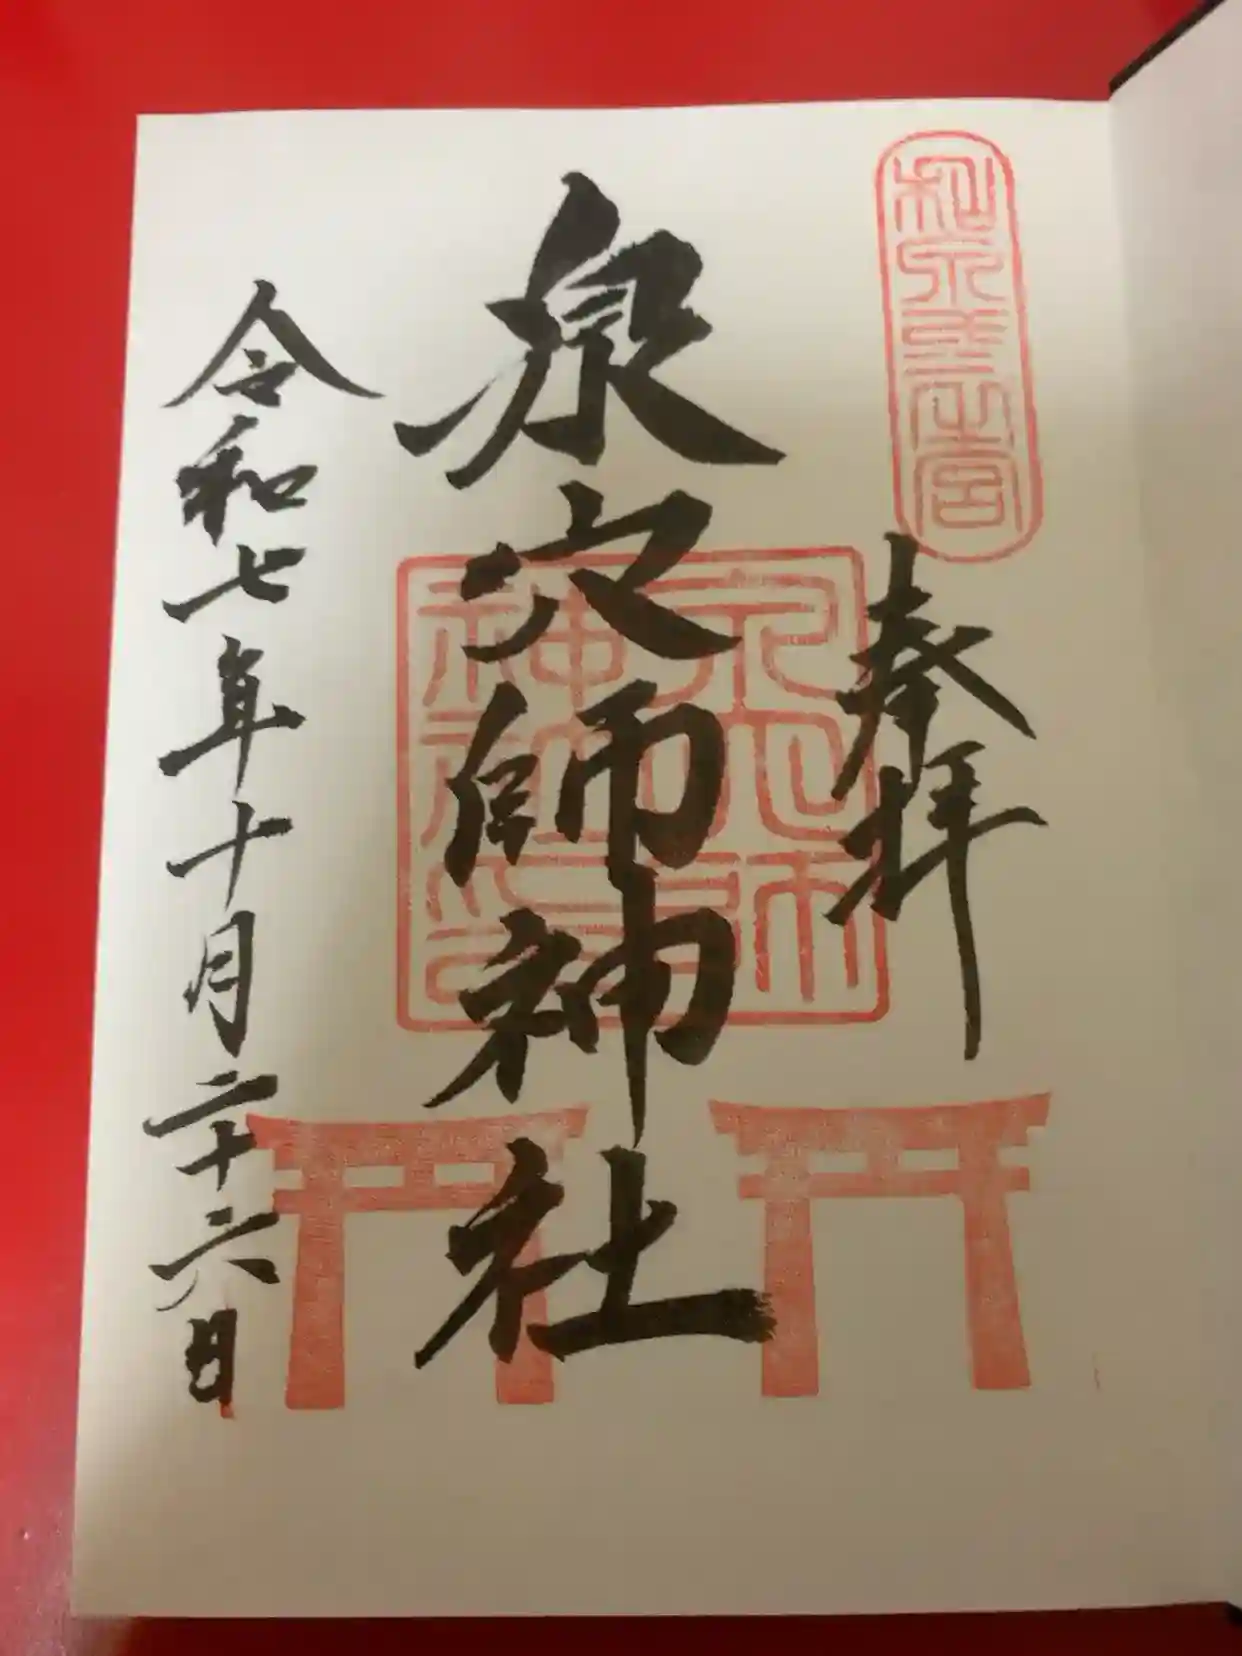 和泉五社宮
奉拝
泉穴師神社
泉穴師神社印
令和七年十月二十六日